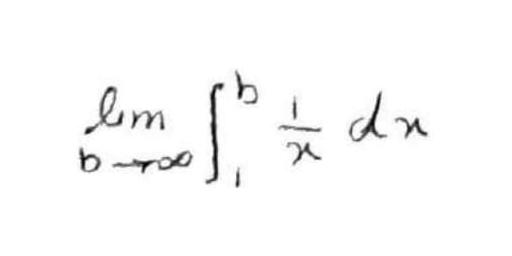 lim_{b→∞} ∫_1^b \frac{1}{x} dx